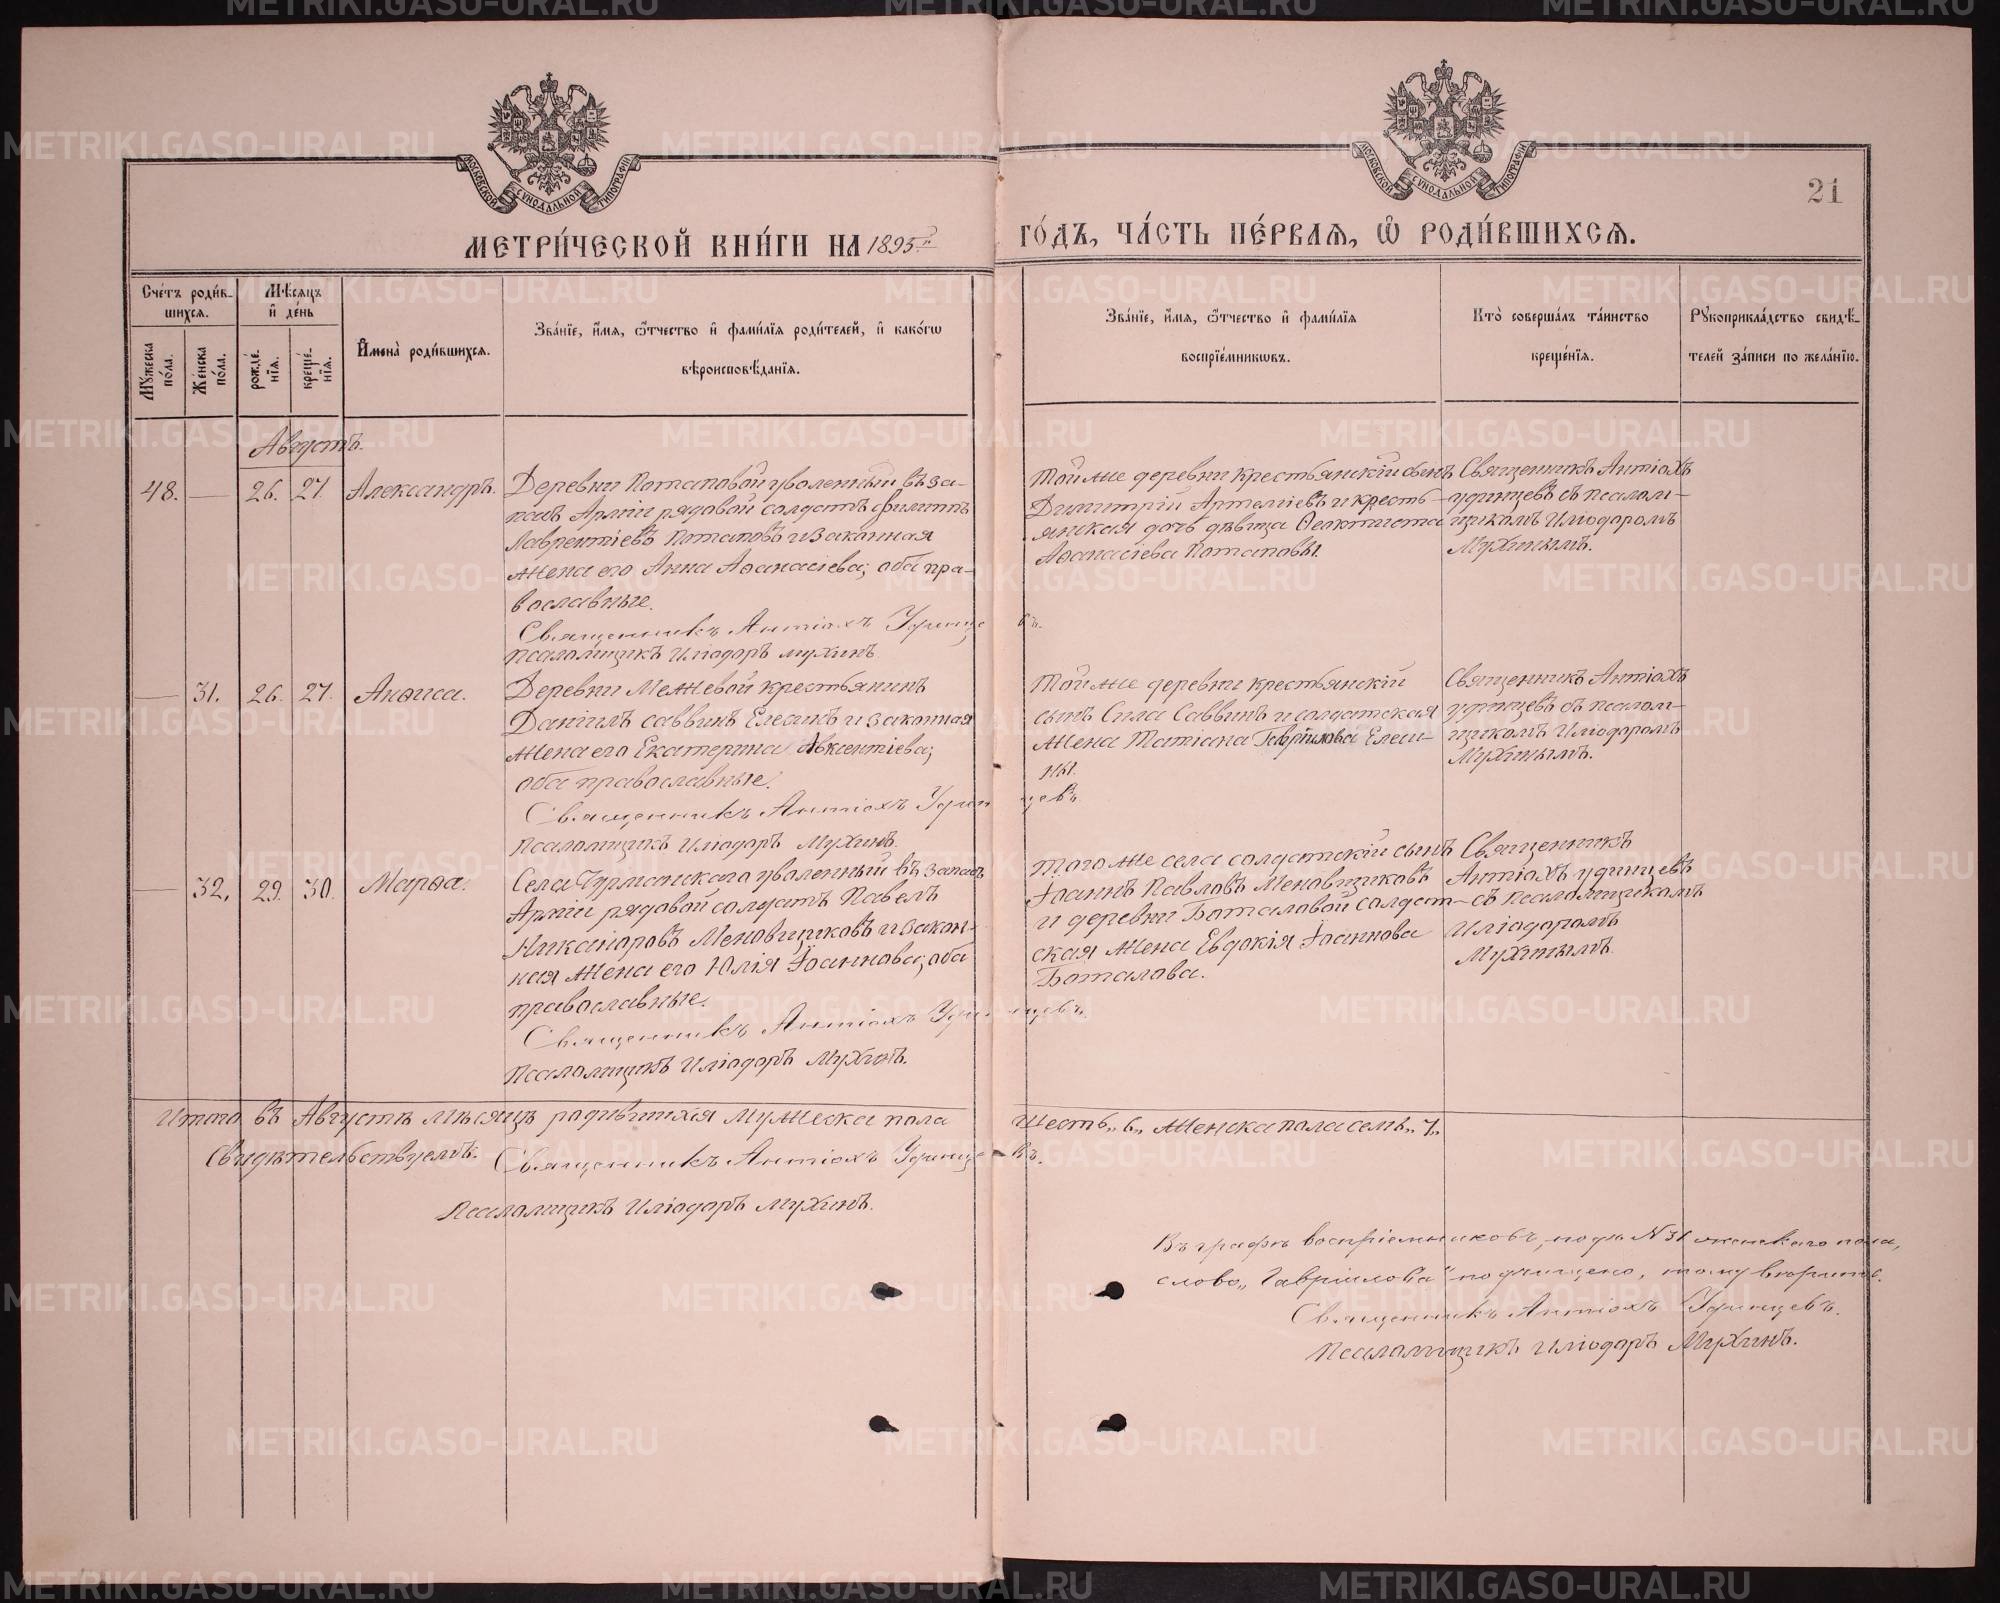 МОСКОВСКОЙ СѴНОДАЛЬНОЙ ТИПОГРАФІИ
МОСКОВСКОЙ СѴНОДАЛЬНОЙ ТИПОГРАФІИ
21
МЕТРИ́ЧЕСКОЙ КНИ́ГИ НА 1895 г. ГО́ДЪ, ЧА́СТЬ ПЕ́РВАЯ, Ѽ РОДИ́ВШИХСЯ.
Сче́тъ роди́в-
шихся.
Мѣ́сяцъ
и҆ де́нь
Мꙋ́жеска по́ла.
Же́нска по́ла.
рожде́-
нїя.
креще́-
нїя.
И҆мена̀ роди́вшихся.
Зва́нїе, и҆́мя, ѻ҆́тчество и҆ фами́лїя роди́телей, и҆ како́гѡ
вѣроисповѣ́данїя.
Зва́нїе, и҆́мя, ѻ҆́тчество и҆ фами́лїя
воспрїе́мникѡвъ.
Кто̀ соверша́лъ та́инство
креще́нїя.
Рꙋкоприкла́дство свидѣ́-
телей за́писи по жела́нїю.
Августъ.
48. — 26. 27. Александръ.
Деревни Потаповой уволенный въ за-
пасъ Арміи рядовой солдатъ Филиппъ
Лаврентіевъ Потаповъ и законная
жена его Анна Аѳанасіева; оба пра-
вославные.
Священникъ Антіохъ Удинцевъ.
Псаломщикъ Иліодоръ Мухинъ.
Той же деревни крестьянскій сынъ
Димитрій Артеміевъ и кресть-
янская дочь дѣвица Ѳеоктиста
Аѳанасіева Потаповы.
Священникъ Антіохъ
Удинцевъ съ псалом-
щикомъ Иліодоромъ
Мухинымъ.
— 31. 26. 27. Анѳиса.
Деревни Межевой крестьянинъ
Даніилъ Саввинъ Елесинъ и законная
жена его Екатерина Авксентіева;
оба православные.
Священникъ Антіохъ Удинцевъ.
Псаломщикъ Иліодоръ Мухинъ.
Той же деревни крестьянскій
сынъ Сила Саввинъ и солдатская
жена Татіана Гавріилова Елеси-
ны.
Священникъ Антіохъ
Удинцевъ съ псалом-
щикомъ Иліодоромъ
Мухинымъ.
— 32. 29. 30. Марѳа.
Села Чурманскаго уволенный въ запасъ
Арміи рядовой солдатъ Павелъ
Никаноровъ Меновщиковъ и закон-
ная жена его Юлія Іоаннова; оба
православные.
Священникъ Антіохъ Удинцевъ.
Псаломщикъ Иліодоръ Мухинъ.
Того же села солдатскій сынъ
Іоаннъ Павловъ Меновщиковъ
и деревни Боталовой солдат-
ская жена Евдокія Іоаннова
Боталова.
Священникъ
Антіохъ Удинцевъ
съ псаломщикомъ
Иліодоромъ
Мухинымъ.
Итого въ Августѣ мѣсяцѣ родившихся мужеска пола шесть „6„ женска пола семь „7„
Свидѣтельствуемъ: Священникъ Антіохъ Удинцевъ.
Псаломщикъ Иліодоръ Мухинъ.
Въ графѣ воспріемниковъ, подъ N 31 женскаго пола,
слово „Гавріилова“ подчищено, тому вѣрить.
Священникъ Антіохъ Удинцевъ.
Псаломщикъ Иліодоръ Мухинъ.
METRIKI.GASO-URAL.RU